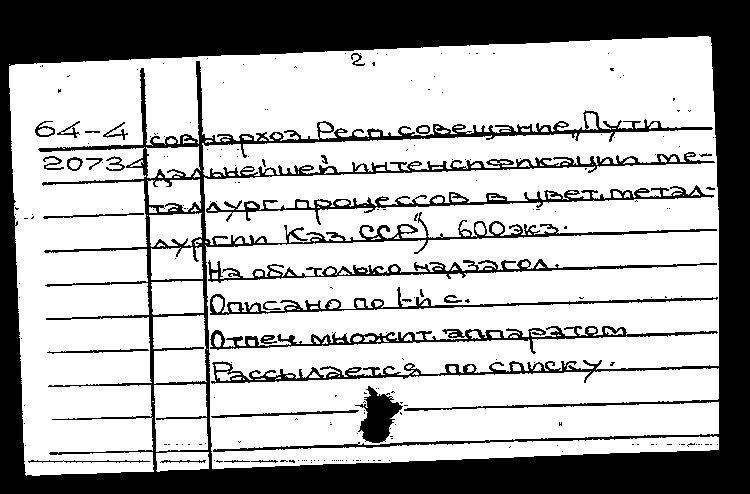 2.
64-4 совнархоз. Респ. совещание „Пути
20734 дальнейшей интенсификации ме-
таллург. процессов в цвет. метал-
лургии Каз. ССР"). 600 экз.
На обл. только надзагол.
Описано по 1-й с.
Отпеч. множит. аппаратом
Рассылается по списку.